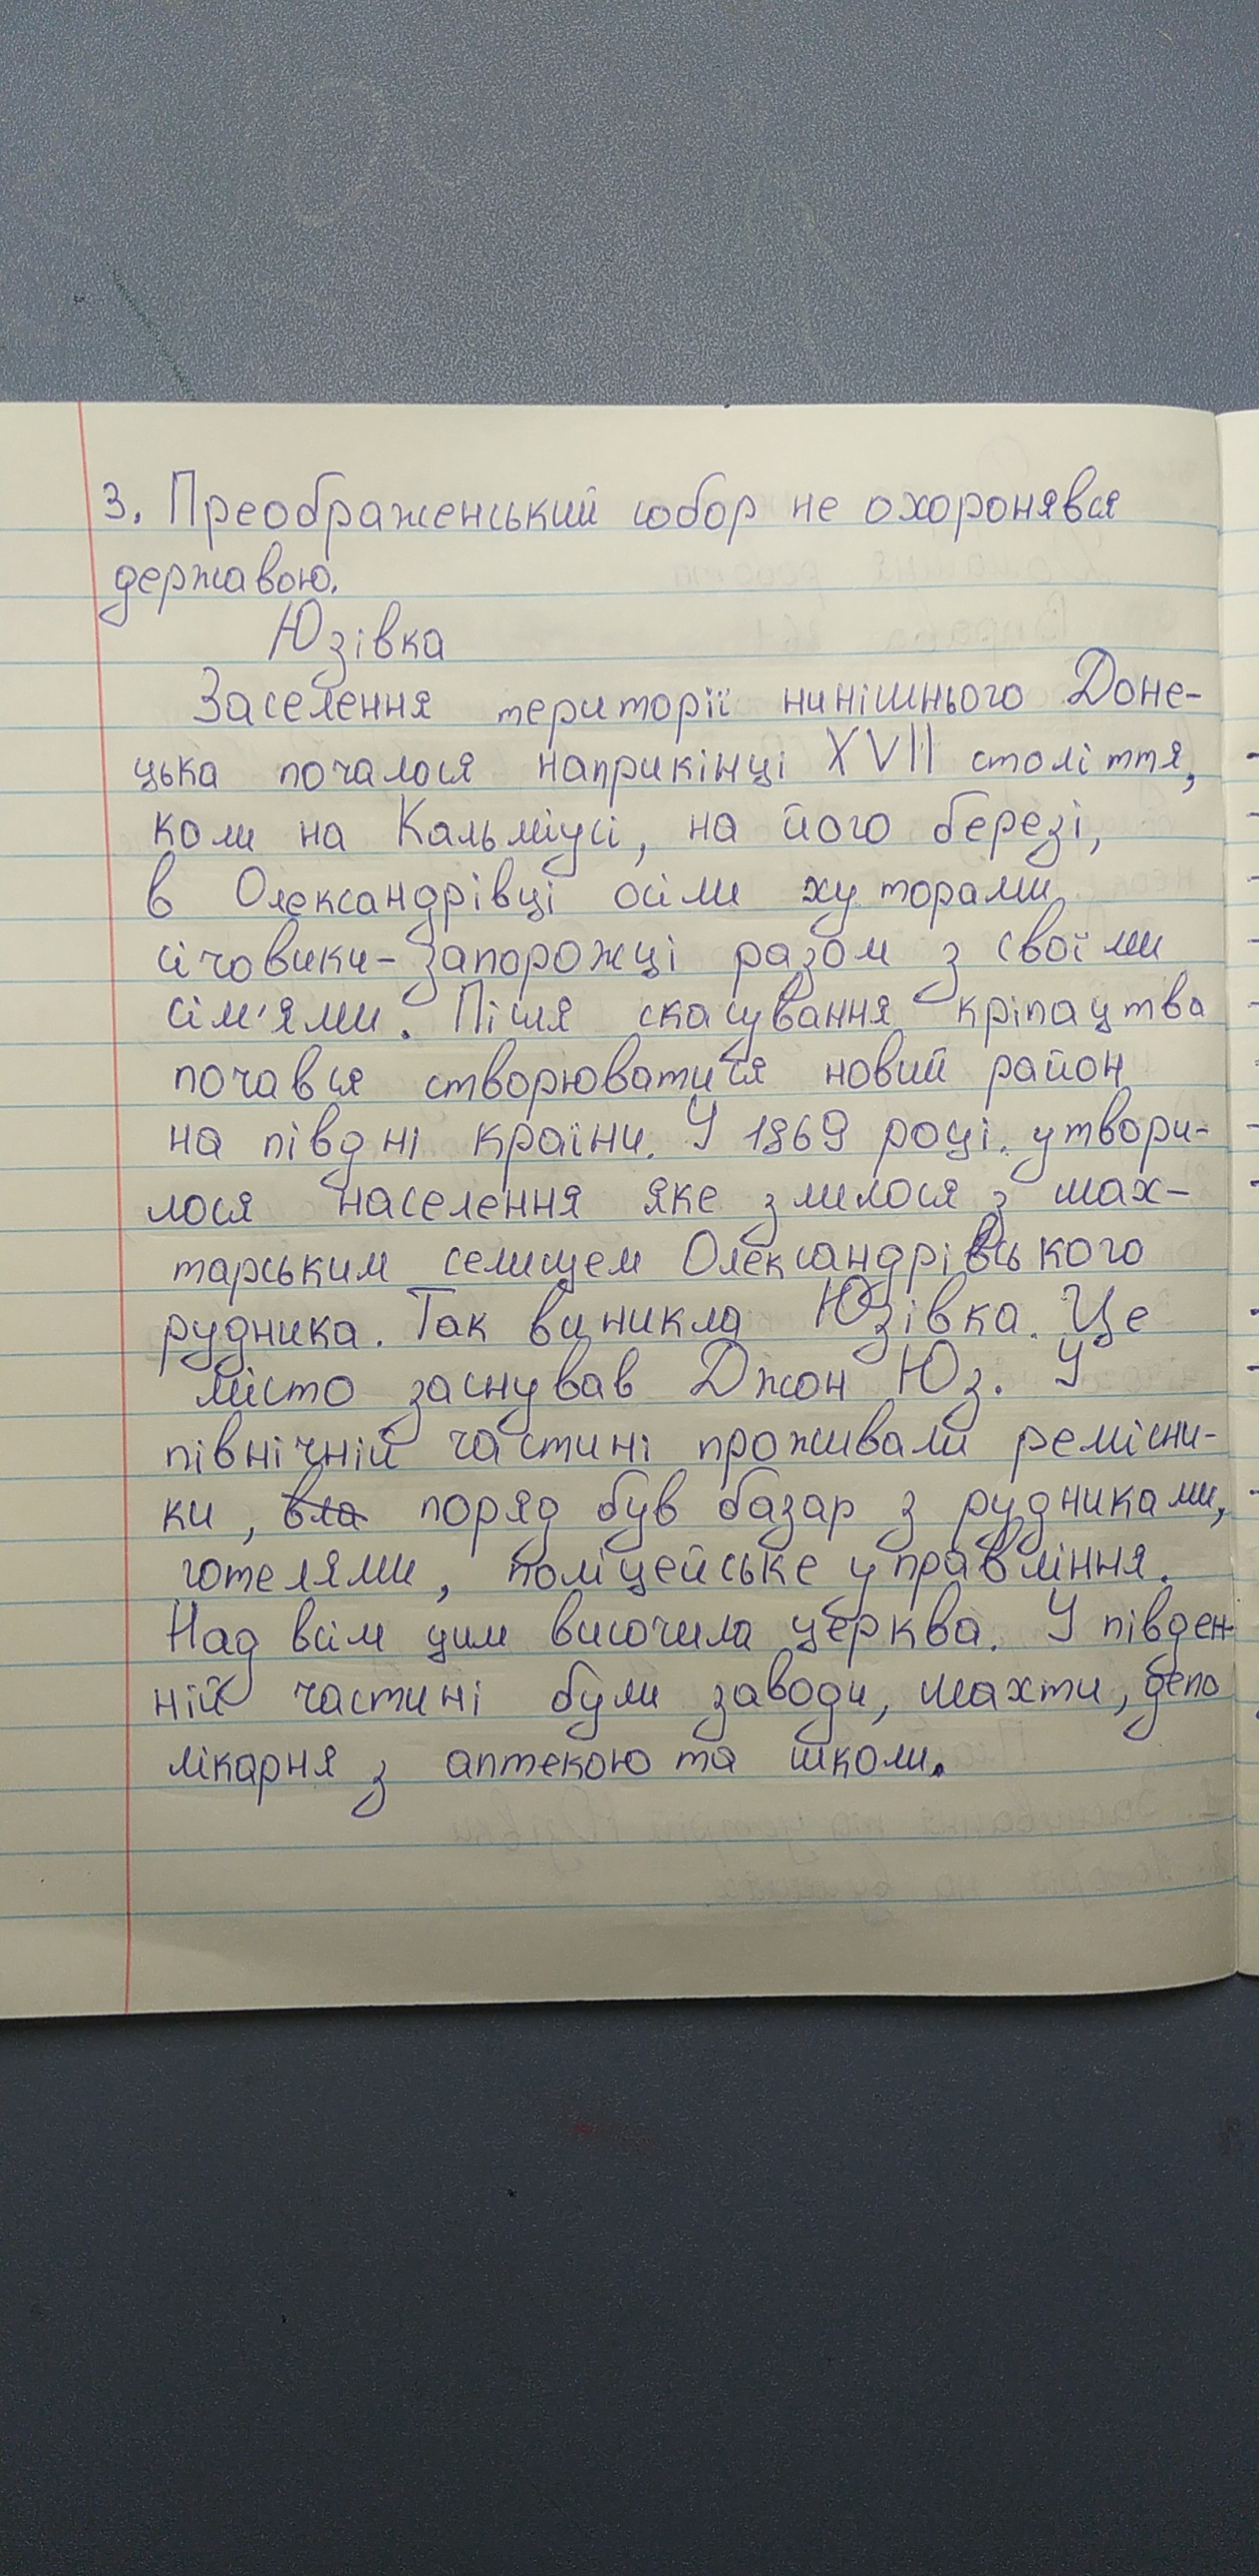 3. Преображенський собор не охоронявся
державою.
Юзівка
Заселення території нинішнього Доне-
цька почалося наприкінці XVII століття,
коли на Кальміусі, на його березі,
в Олександрівці осіли хуторами
січовики-запорожці разом з своїми
сім'ями. Після скасування кріпацтва
почався створюватися новий район
на півдні країни. У 1869 році утвори-
лося населення яке злилося з шах-
тарським селищем Олександрівського
рудника. Так виникла Юзівка. Це
місто заснував Джон Юз. У
північній частині проживали ремісни-
ки, вла поряд був базар з рудниками,
готелями, поліцейське управління.
Над всім цим височила церква. У півден-
ній частині були заводи, шахти, депо
лікарня з аптекою та школи.